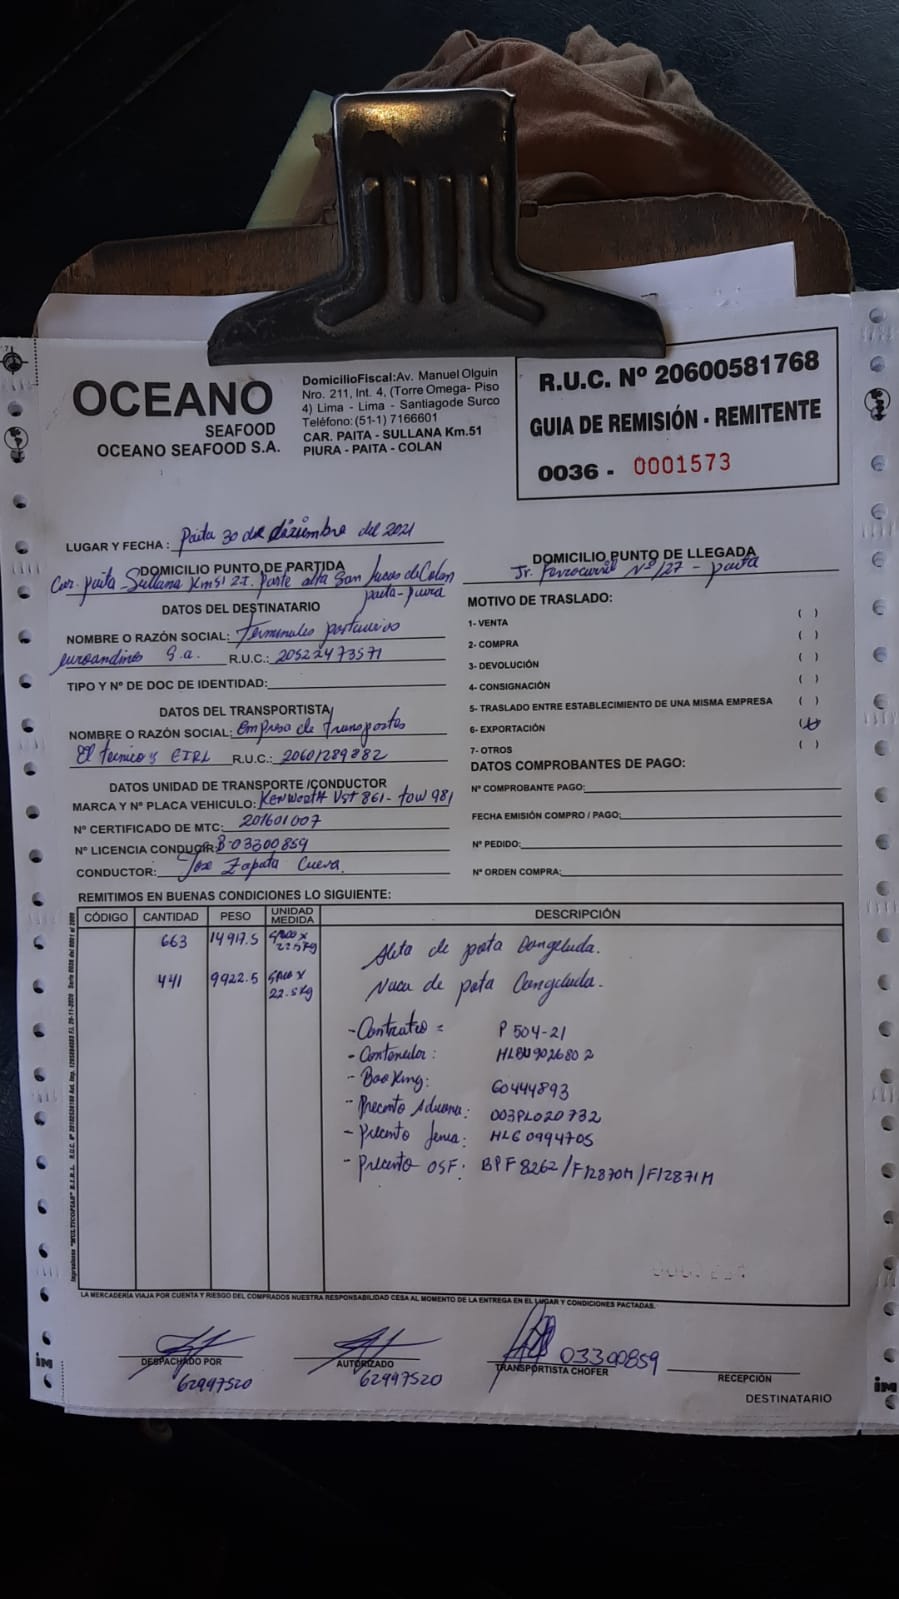 OCEANO
SEAFOOD
OCEANO SEAFOOD S.A.
DomicilioFiscal:Av. Manuel Olguin
Nro. 211, Int. 4, (Torre Omega- Piso
4) Lima - Lima - Santiagode Surco
Teléfono:(51-1) 7166601
CAR. PAITA - SULLANA Km.51
PIURA - PAITA - COLAN
R.U.C. Nº 20600581768
GUIA DE REMISIÓN - REMITENTE
0036 - 0001573
LUGAR Y FECHA : Paita 30 de diciembre del 2021
DOMICILIO PUNTO DE PARTIDA
Car. Paita-Sullana Km51 Z.I. Parte alta San Lucas de Colan
paita-piura
DOMICILIO PUNTO DE LLEGADA
Jr. Ferrocarril Nº 127 - paita
DATOS DEL DESTINATARIO
NOMBRE O RAZÓN SOCIAL: Terminales portuarios
euroandinos S.a. R.U.C.: 20522473571
TIPO Y Nº DE DOC DE IDENTIDAD:
DATOS DEL TRANSPORTISTA
NOMBRE O RAZÓN SOCIAL: Empresa de Transportes
El tecnico's EIRL R.U.C.: 20601289882
DATOS UNIDAD DE TRANSPORTE /CONDUCTOR
MARCA Y Nº PLACA VEHICULO: KENWORTH V5T 861 - tow 981
Nº CERTIFICADO DE MTC: 201601007
Nº LICENCIA CONDUCIR: B-03300859
CONDUCTOR: Jose Zapata Cueva.
MOTIVO DE TRASLADO:
1- VENTA ( )
2- COMPRA ( )
3- DEVOLUCIÓN ( )
4- CONSIGNACIÓN ( )
5- TRASLADO ENTRE ESTABLECIMIENTO DE UNA MISMA EMPRESA ( )
6- EXPORTACIÓN (x)
7- OTROS ( )
DATOS COMPROBANTES DE PAGO:
Nº COMPROBANTE PAGO:
FECHA EMISIÓN COMPRO / PAGO:
Nº PEDIDO:
Nº ORDEN COMPRA:
REMITIMOS EN BUENAS CONDICIONES LO SIGUIENTE:
CÓDIGO CANTIDAD PESO UNIDAD MEDIDA DESCRIPCIÓN
663 14917.5 saco x 22.5Kg Aleta de pota Congelada.
441 9922.5 saco x 22.5Kg Nuca de pota Congelada.
- Contrato = P 504-21
- Contenedor: HLBU9026802
- Booking: 60444893
- Precinto Aduana: 003PL020732
- Precinto Linea: HLG0994705
- Precinto OSF: BPF8262/F12870M/F12871M
LA MERCADERÍA VIAJA POR CUENTA Y RIESGO DEL COMPRADOS NUESTRA RESPONSABILIDAD CESA AL MOMENTO DE LA ENTREGA EN EL LUGAR Y CONDICIONES PACTADAS.
DESPACHADO POR
62997520
AUTORIZADO
62997520
03300859
TRANSPORTISTA CHOFER
RECEPCIÓN
DESTINATARIO